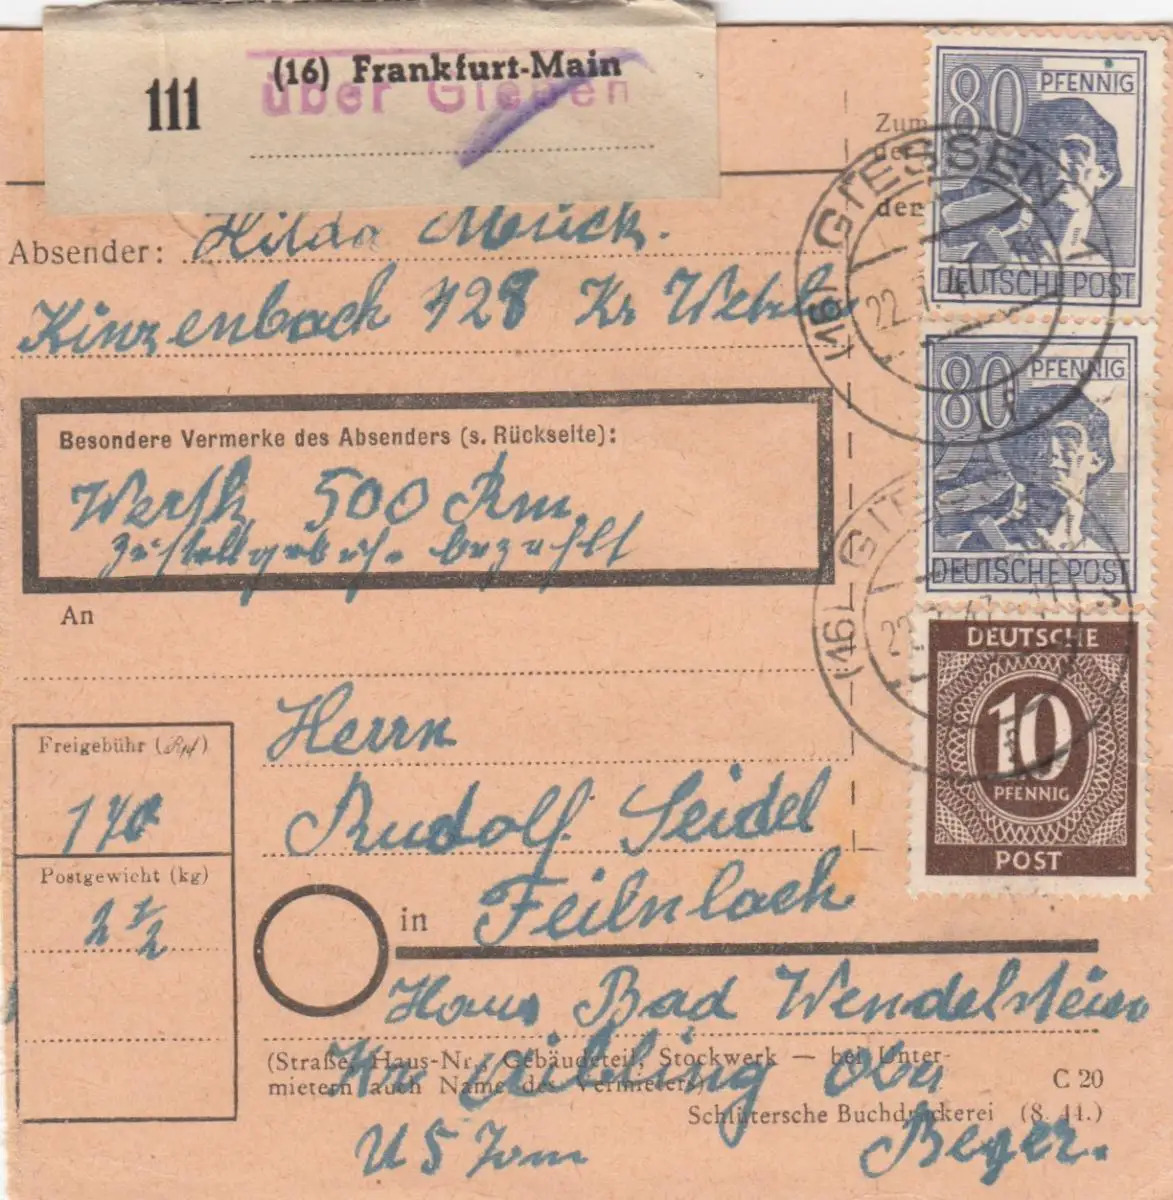 111
(16) Frankfurt-Main
über Gießen
Zum
der
den
Absender: Hilda Mück.
Kinzenbach 128 Kr Wetzla
Besondere Vermerke des Absenders (s. Rückseite):
Werth 500 Rm
Zustellgebüh. bezahlt
An
Herrn
Rudolf Seidel
in Feilnbach
Haus Bad Wendelstein
(Straße, Haus-Nr., Gebäudeteil, Stockwerk — bei Unter-
mietern auch Name des Vermieters)
Kr Aibling Ober
US Zone Beyer.
C 20
Schlütersche Buchdruckerei (8. 44.)
Freigebühr (Rpf)
170
Postgewicht (kg)
2 1/2
80 PFENNIG
DEUTSCHE POST
80 PFENNIG
DEUTSCHE POST
DEUTSCHE
10
PFENNIG
POST
(16) GIESSEN 1
22.
f
(16) GIESSEN 1
22. 47
f